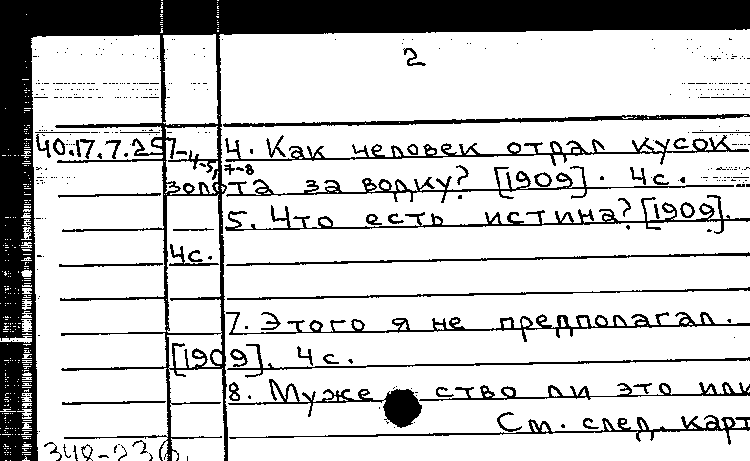 2
40.17.7.257-4-5, 7-8 4. Как человек отдал кусок
золота за водку? [1909]. 4с.
5. Что есть истина? [1909].
4с.
7. Этого я не предполагал.
[1909]. 4с.
8. Муже ство ли это или
См. след. карт
348-23